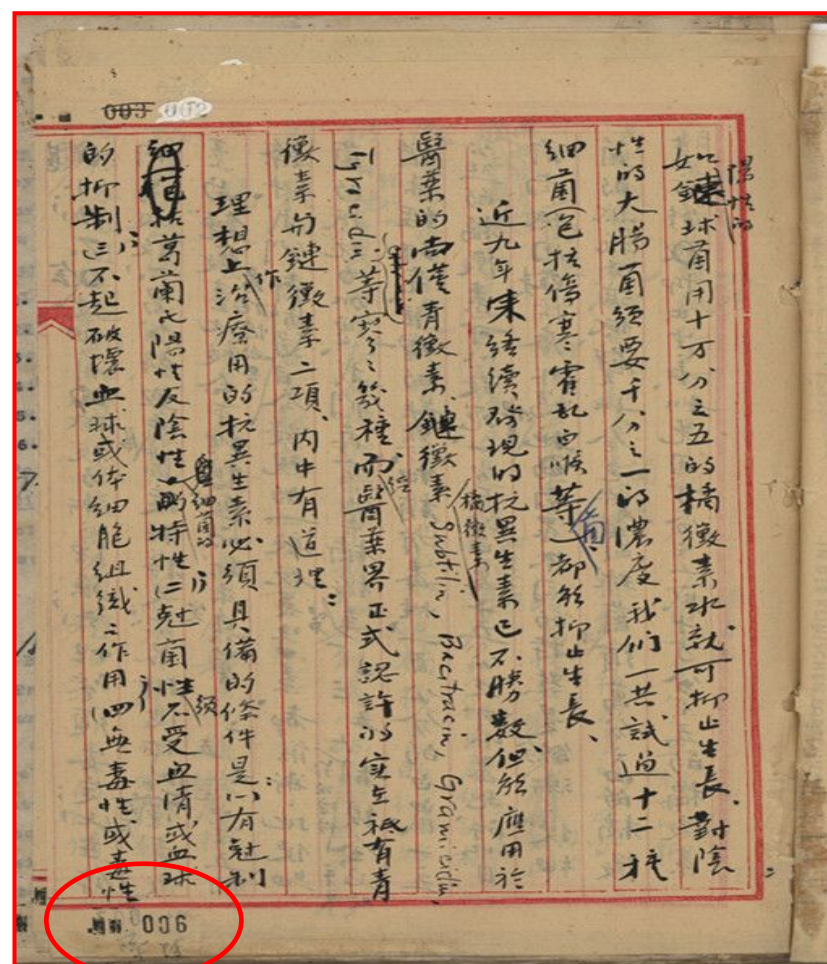 003 002
陽性的
如鏈球菌用十万分之五的橘黴素水就可抑止生長、對陰
性的大腸菌須要千分之一的濃度我们一共試過十二種
細菌包括傷寒、霍乱白喉等菌、都能抑止生長、
近九年來繼續發現的抗異生素已不勝數、但能應用於
醫葉的尚僅青黴素、鏈黴素、橘黴素 Subtilin, Bacitracin, Gramicidin,
等寥々幾種、而醫葉界正式認許的实在祇有青
黴素与鏈黴素二項、内中有道理：
理想上治療用的抗異生素必須具備的條件是：(一)有尅制
細菌的
葛蘭氏陽性反陰性的特性；(二)尅菌性不受血清或血球
的抑制；(三)不起破壞血球或体細胞組織之作用；(四)無毒性、或毒性
006